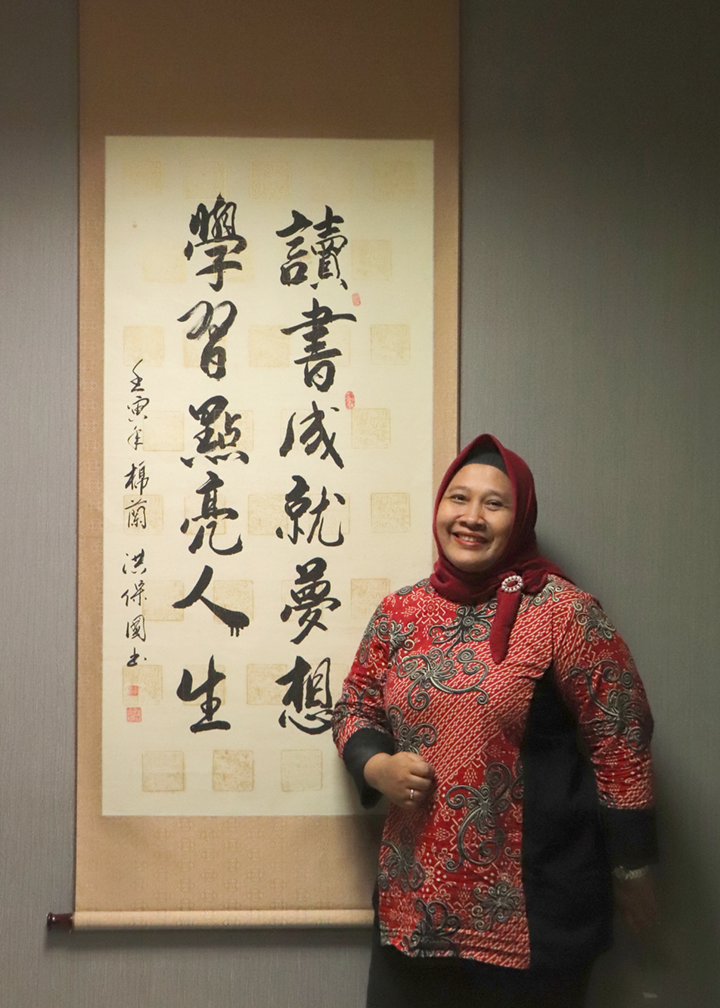 讀書成就夢想
學習點亮人生
壬寅年 棉蘭 洪保國书